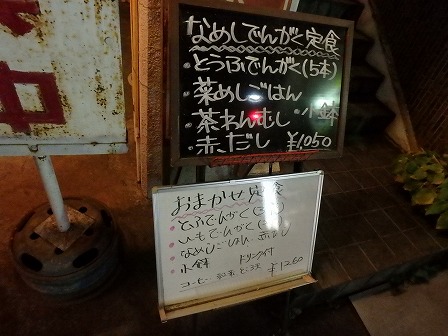 中
なめしでんがく定食
・とうふでんがく(5本)
・菜めしごはん
・茶わんむし・小鉢
・赤だし ¥1050
おまかせ定食
・とふでんがく
・いもでんがく
・なめしごはん 赤だし
・小鉢 ドリンク付
コーヒー 紅茶 ¥1260